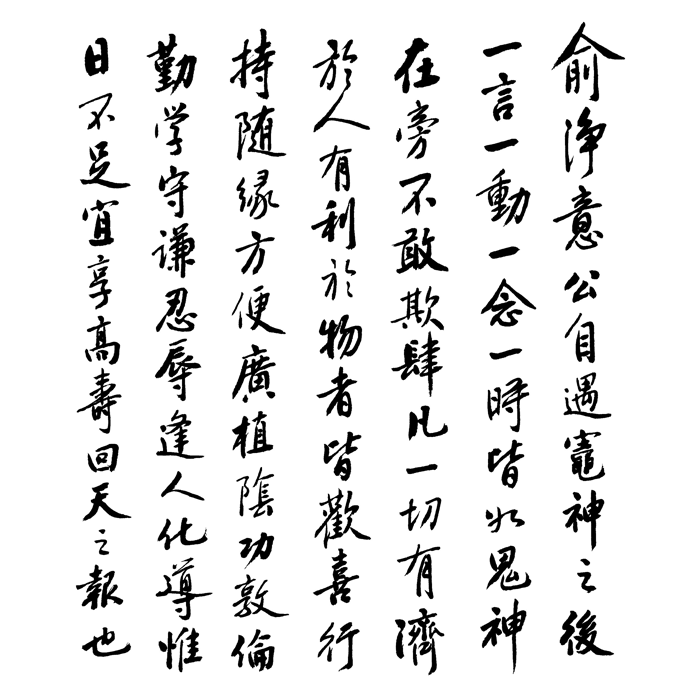 俞淨意公自遇竈神之後
一言一動一念一時皆如鬼神
在旁不敢欺肆凡一切有濟
於人有利於物者皆歡喜行
持随緣方便廣植陰功敦倫
勤学守谦忍辱逢人化導惟
日不足宜享高壽回天之報也